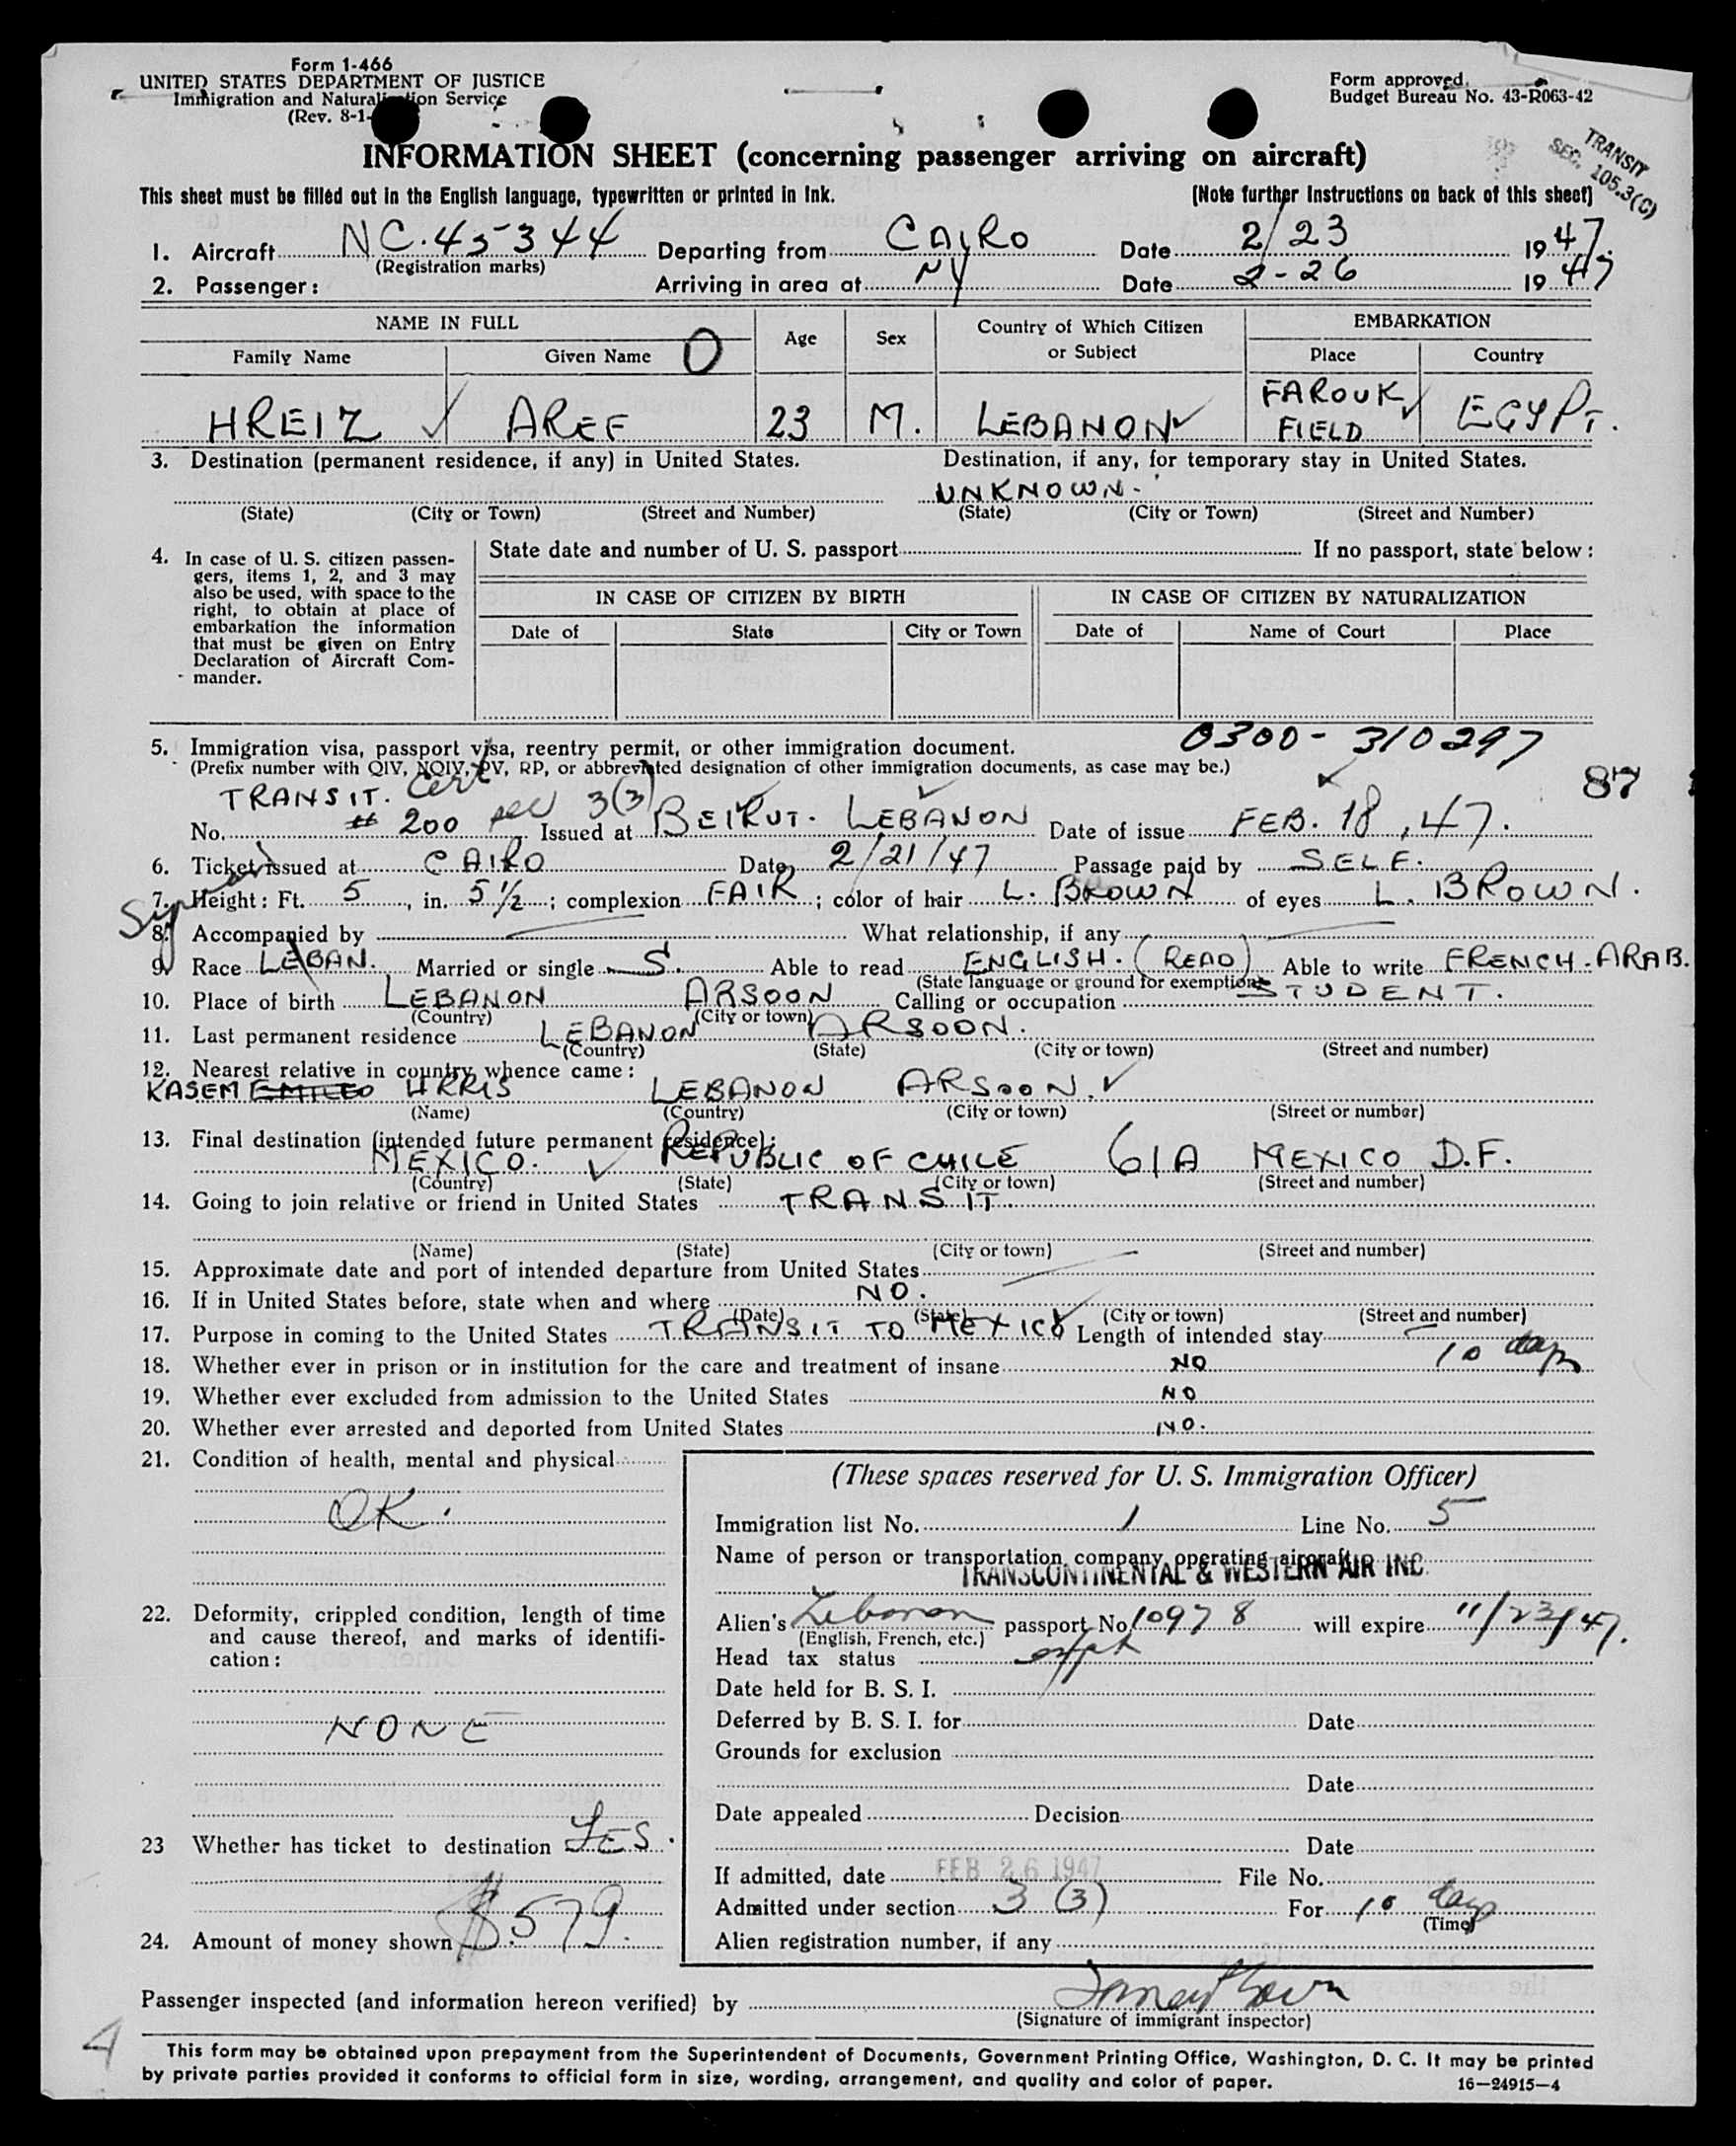 Form 1-466
UNITED STATES DEPARTMENT OF JUSTICE
Immigration and Naturalization Service
(Rev. 8-1-
Form approved.
Budget Bureau No. 43-R063-42
TRANSIT
SEC. 105.3(C)
INFORMATION SHEET (concerning passenger arriving on aircraft)
This sheet must be filled out in the English language, typewritten or printed in ink. (Note further instructions on back of this sheet)
1. Aircraft NC.45344 Departing from CAIRO Date 2/23 1947.
(Registration marks)
2. Passenger: Arriving in area at NY Date 2-26 1947
NAME IN FULL Age Sex Country of Which Citizen or Subject EMBARKATION
Family Name Given Name O Place Country
HREIZ AREF 23 M. LEBANON FAROUK FIELD EGYPT.
3. Destination (permanent residence, if any) in United States. Destination, if any, for temporary stay in United States.
UNKNOWN.
(State) (City or Town) (Street and Number) (State) (City or Town) (Street and Number)
4. In case of U. S. citizen passengers, items 1, 2, and 3 may also be used, with space to the right, to obtain at place of embarkation the information that must be given on Entry Declaration of Aircraft Commander.
State date and number of U. S. passport If no passport, state below:
IN CASE OF CITIZEN BY BIRTH IN CASE OF CITIZEN BY NATURALIZATION
Date of State City or Town Date of Name of Court Place
5. Immigration visa, passport visa, reentry permit, or other immigration document. 0300-310297
(Prefix number with QIV, NQIV, PV, RP, or abbreviated designation of other immigration documents, as case may be.)
87
TRANSIT. Cert
No. # 200 sec 3(3) Issued at BEIRUT. LEBANON Date of issue FEB. 18, 47.
6. Ticket issued at CAIRO Date 2/21/47 Passage paid by SELF.
7. Height: Ft. 5, in. 5 1/2; complexion FAIR; color of hair L. BROWN of eyes L. BROWN.
8. Accompanied by What relationship, if any
9. Race LEBAN. Married or single S. Able to read ENGLISH. (READ) Able to write FRENCH-ARAB.
(State language or ground for exemption)
10. Place of birth LEBANON ARSOON Calling or occupation STUDENT.
(Country) (City or town)
11. Last permanent residence LEBANON ARSOON.
(Country) (State) (City or town) (Street and number)
12. Nearest relative in country whence came:
KASEM HRRIS LEBANON ARSOON.
(Name) (Country) (City or town) (Street or number)
13. Final destination (intended future permanent residence):
MEXICO. REPUBLIC OF CHILE 61A MEXICO D.F.
(Country) (State) (City or town) (Street and number)
14. Going to join relative or friend in United States TRANSIT.
(Name) (State) (City or town) (Street and number)
15. Approximate date and port of intended departure from United States
16. If in United States before, state when and where NO.
(Date) (State) (City or town) (Street and number)
17. Purpose in coming to the United States TRANSIT TO MEXICO Length of intended stay 10 days
18. Whether ever in prison or in institution for the care and treatment of insane NO
19. Whether ever excluded from admission to the United States NO
20. Whether ever arrested and deported from United States NO.
21. Condition of health, mental and physical
OK.
22. Deformity, crippled condition, length of time and cause thereof, and marks of identification:
NONE
23 Whether has ticket to destination YES.
24. Amount of money shown $579.
(These spaces reserved for U. S. Immigration Officer)
Immigration list No. 1 Line No. 5
Name of person or transportation company operating aircraft
TRANSCONTINENTAL & WESTERN AIR INC.
Alien's Lebanon passport No 10978 will expire 11/23/47.
(English, French, etc.)
Head tax status
Date held for B. S. I.
Deferred by B. S. I. for Date
Grounds for exclusion
Date
Date appealed Decision
Date
If admitted, date FEB 26 1947 File No.
Admitted under section 3 (3) For 10 days
(Time)
Alien registration number, if any
Passenger inspected (and information hereon verified) by
(Signature of immigrant inspector)
4
This form may be obtained upon prepayment from the Superintendent of Documents, Government Printing Office, Washington, D. C. It may be printed
by private parties provided it conforms to official form in size, wording, arrangement, and quality and color of paper. 16—24915-4